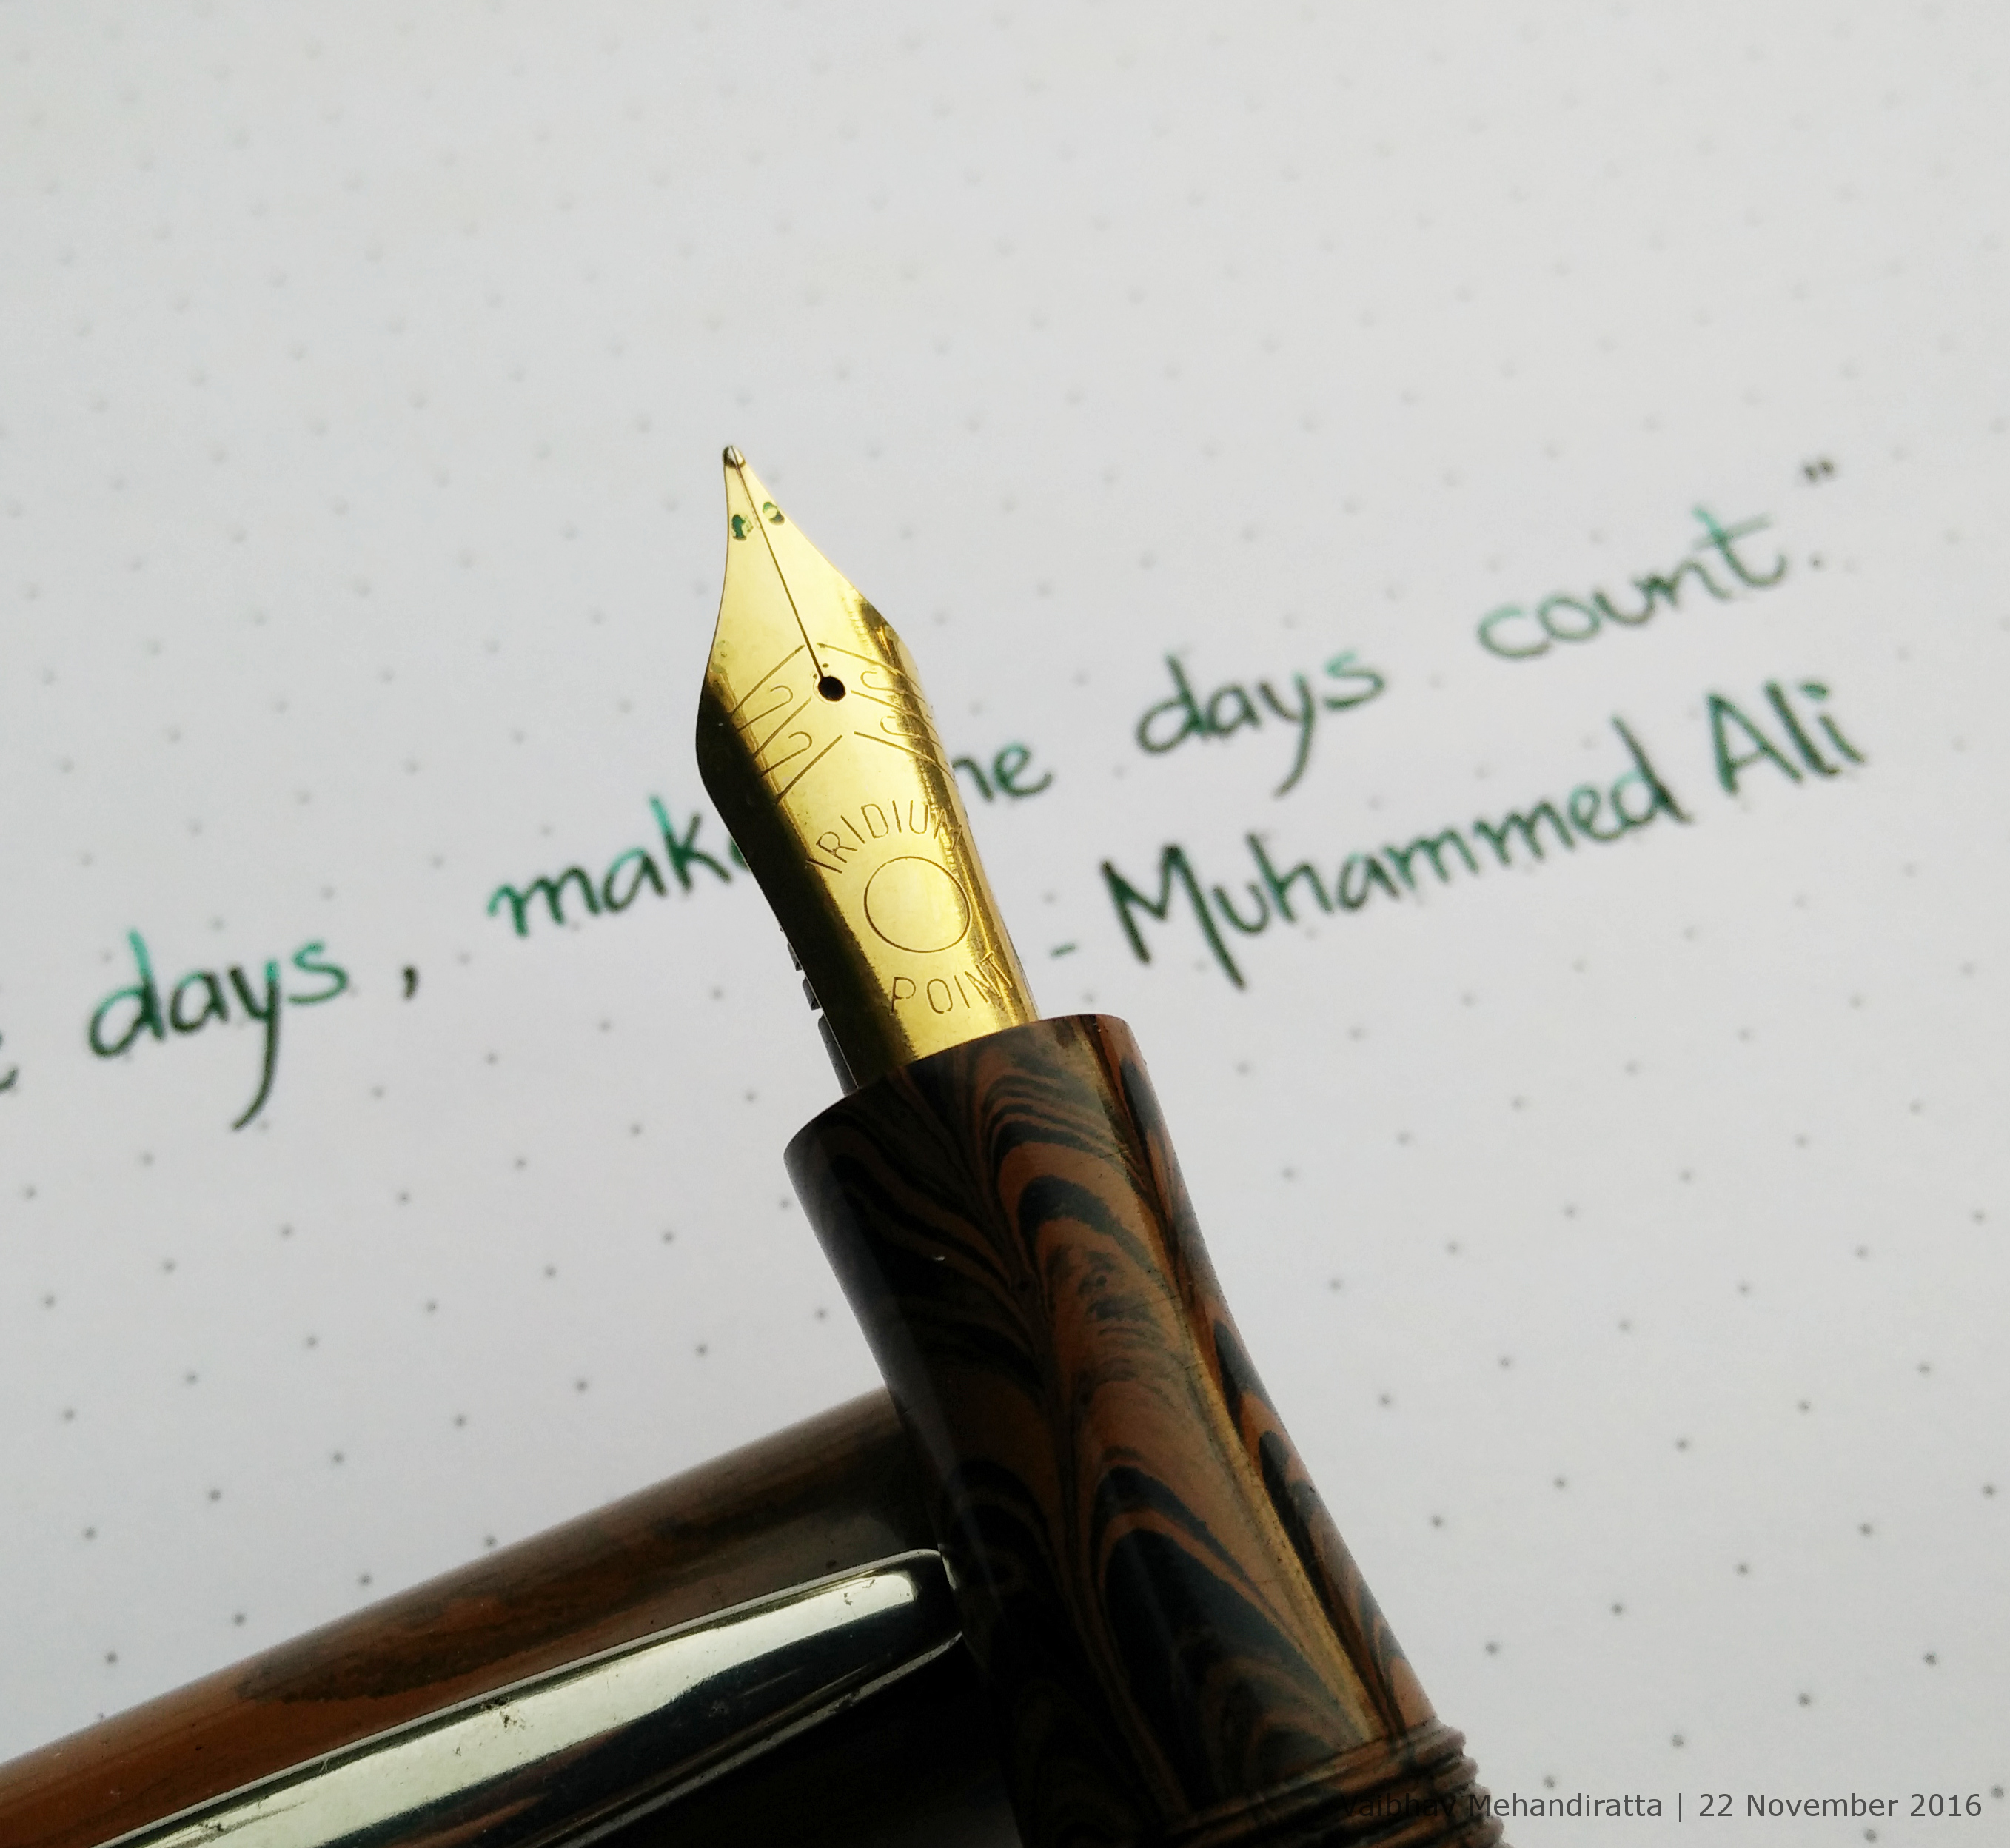 days, make the days count."
- Muhammed Ali
IRIDIUM
POINT
Vaibhav Mehandiratta | 22 November 2016